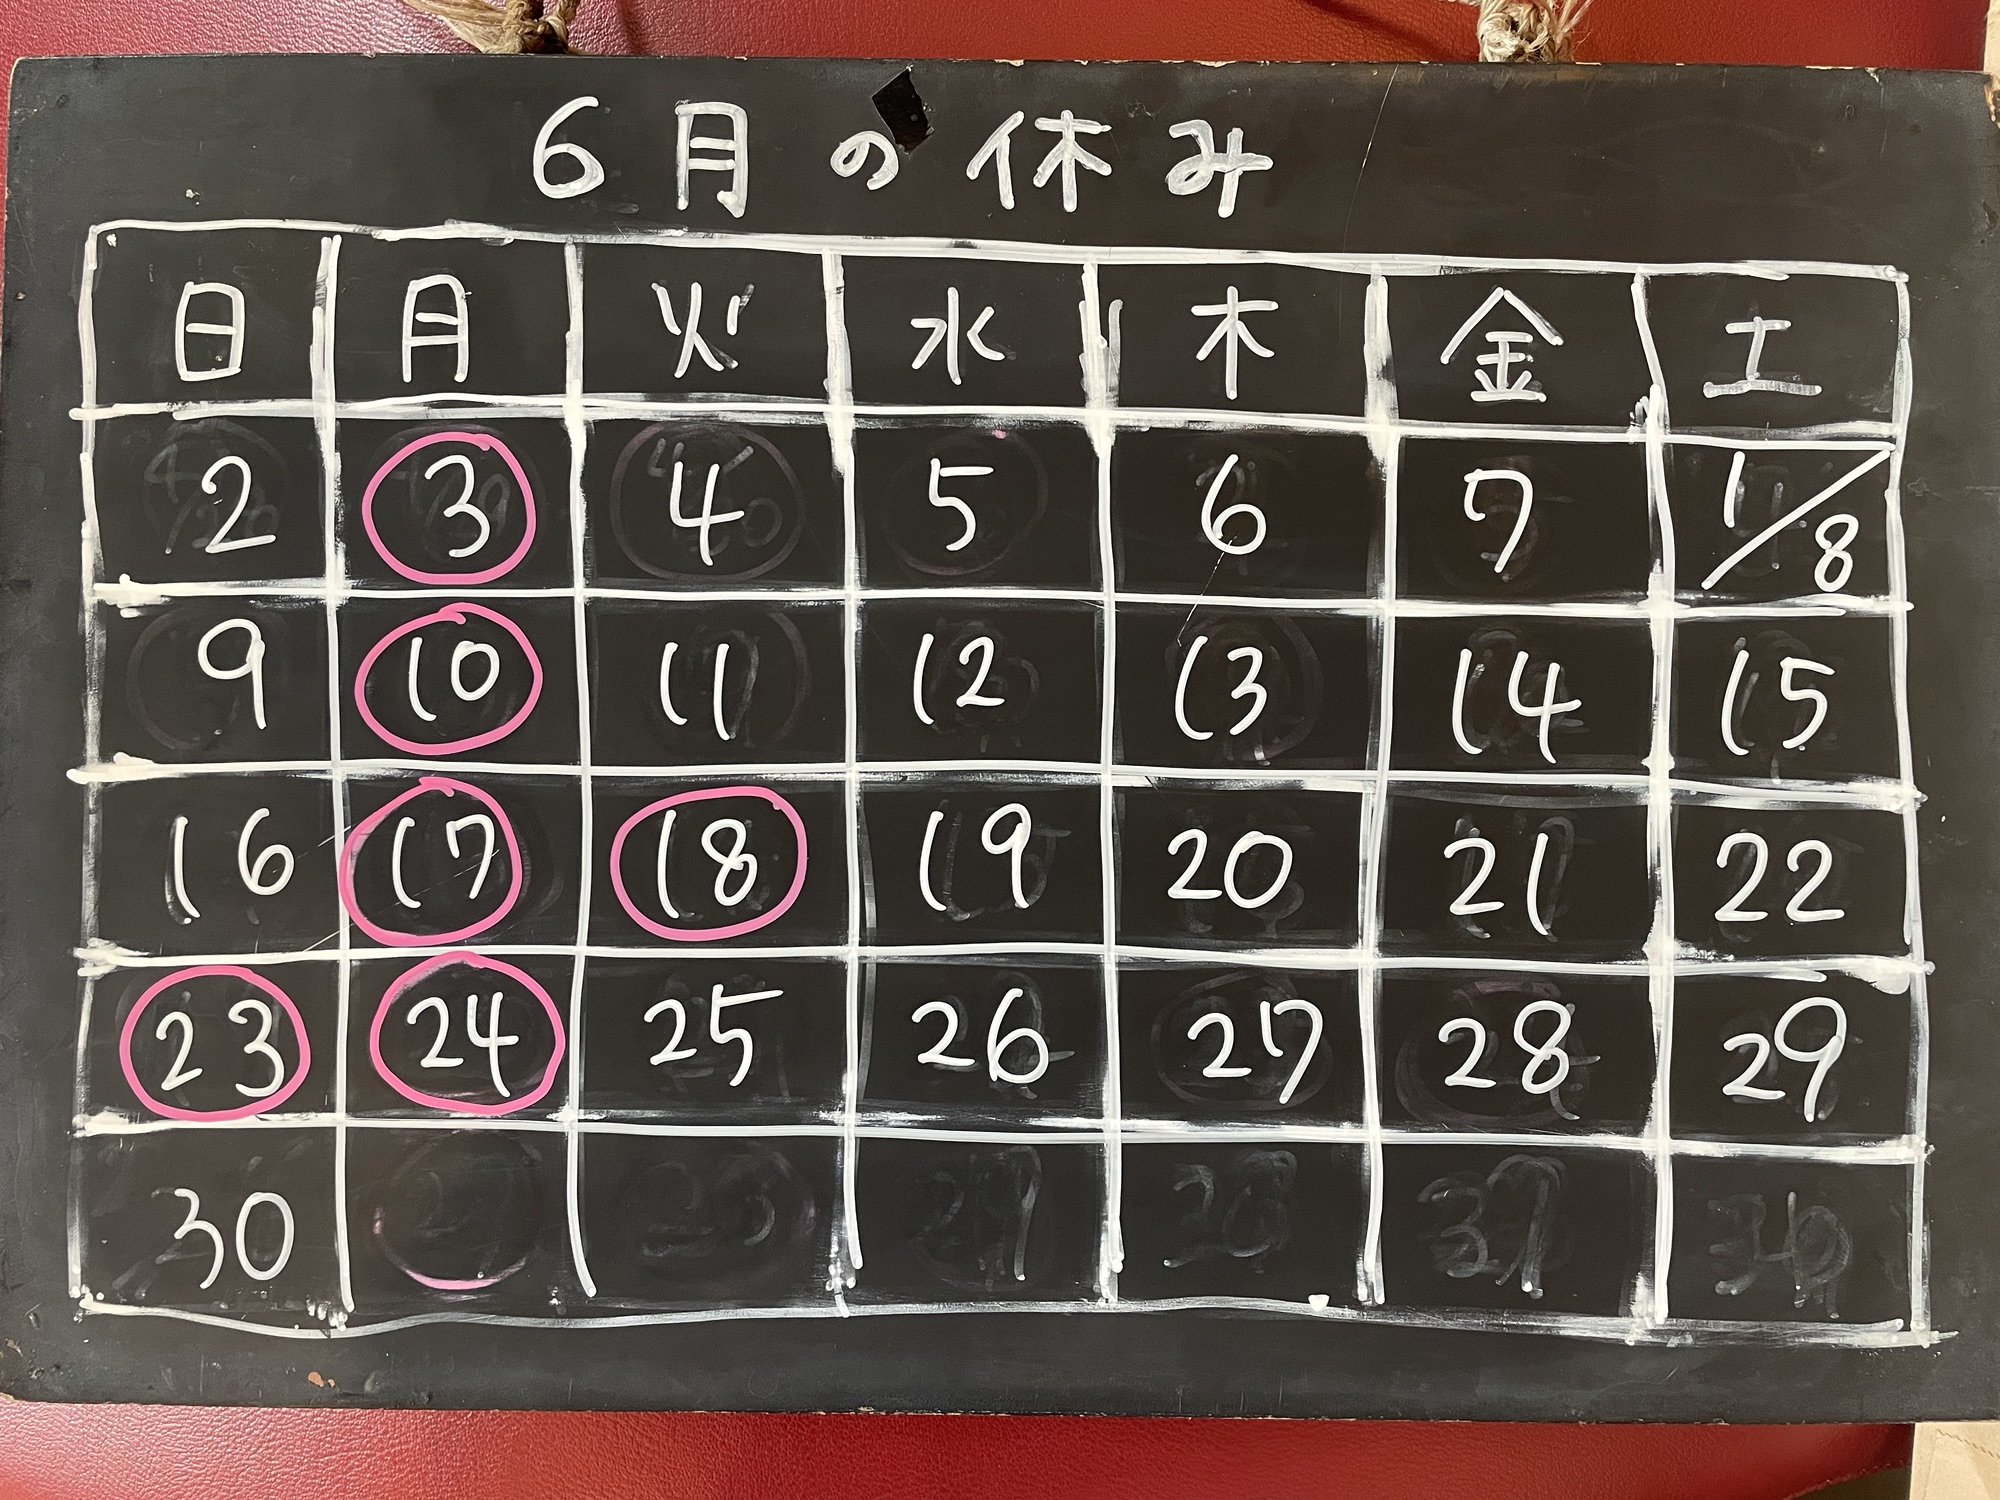 6月の休み
日 月 火 水 木 金 土
2 3 4 5 6 7 1/8
9 10 11 12 13 14 15
16 17 18 19 20 21 22
23 24 25 26 27 28 29
30